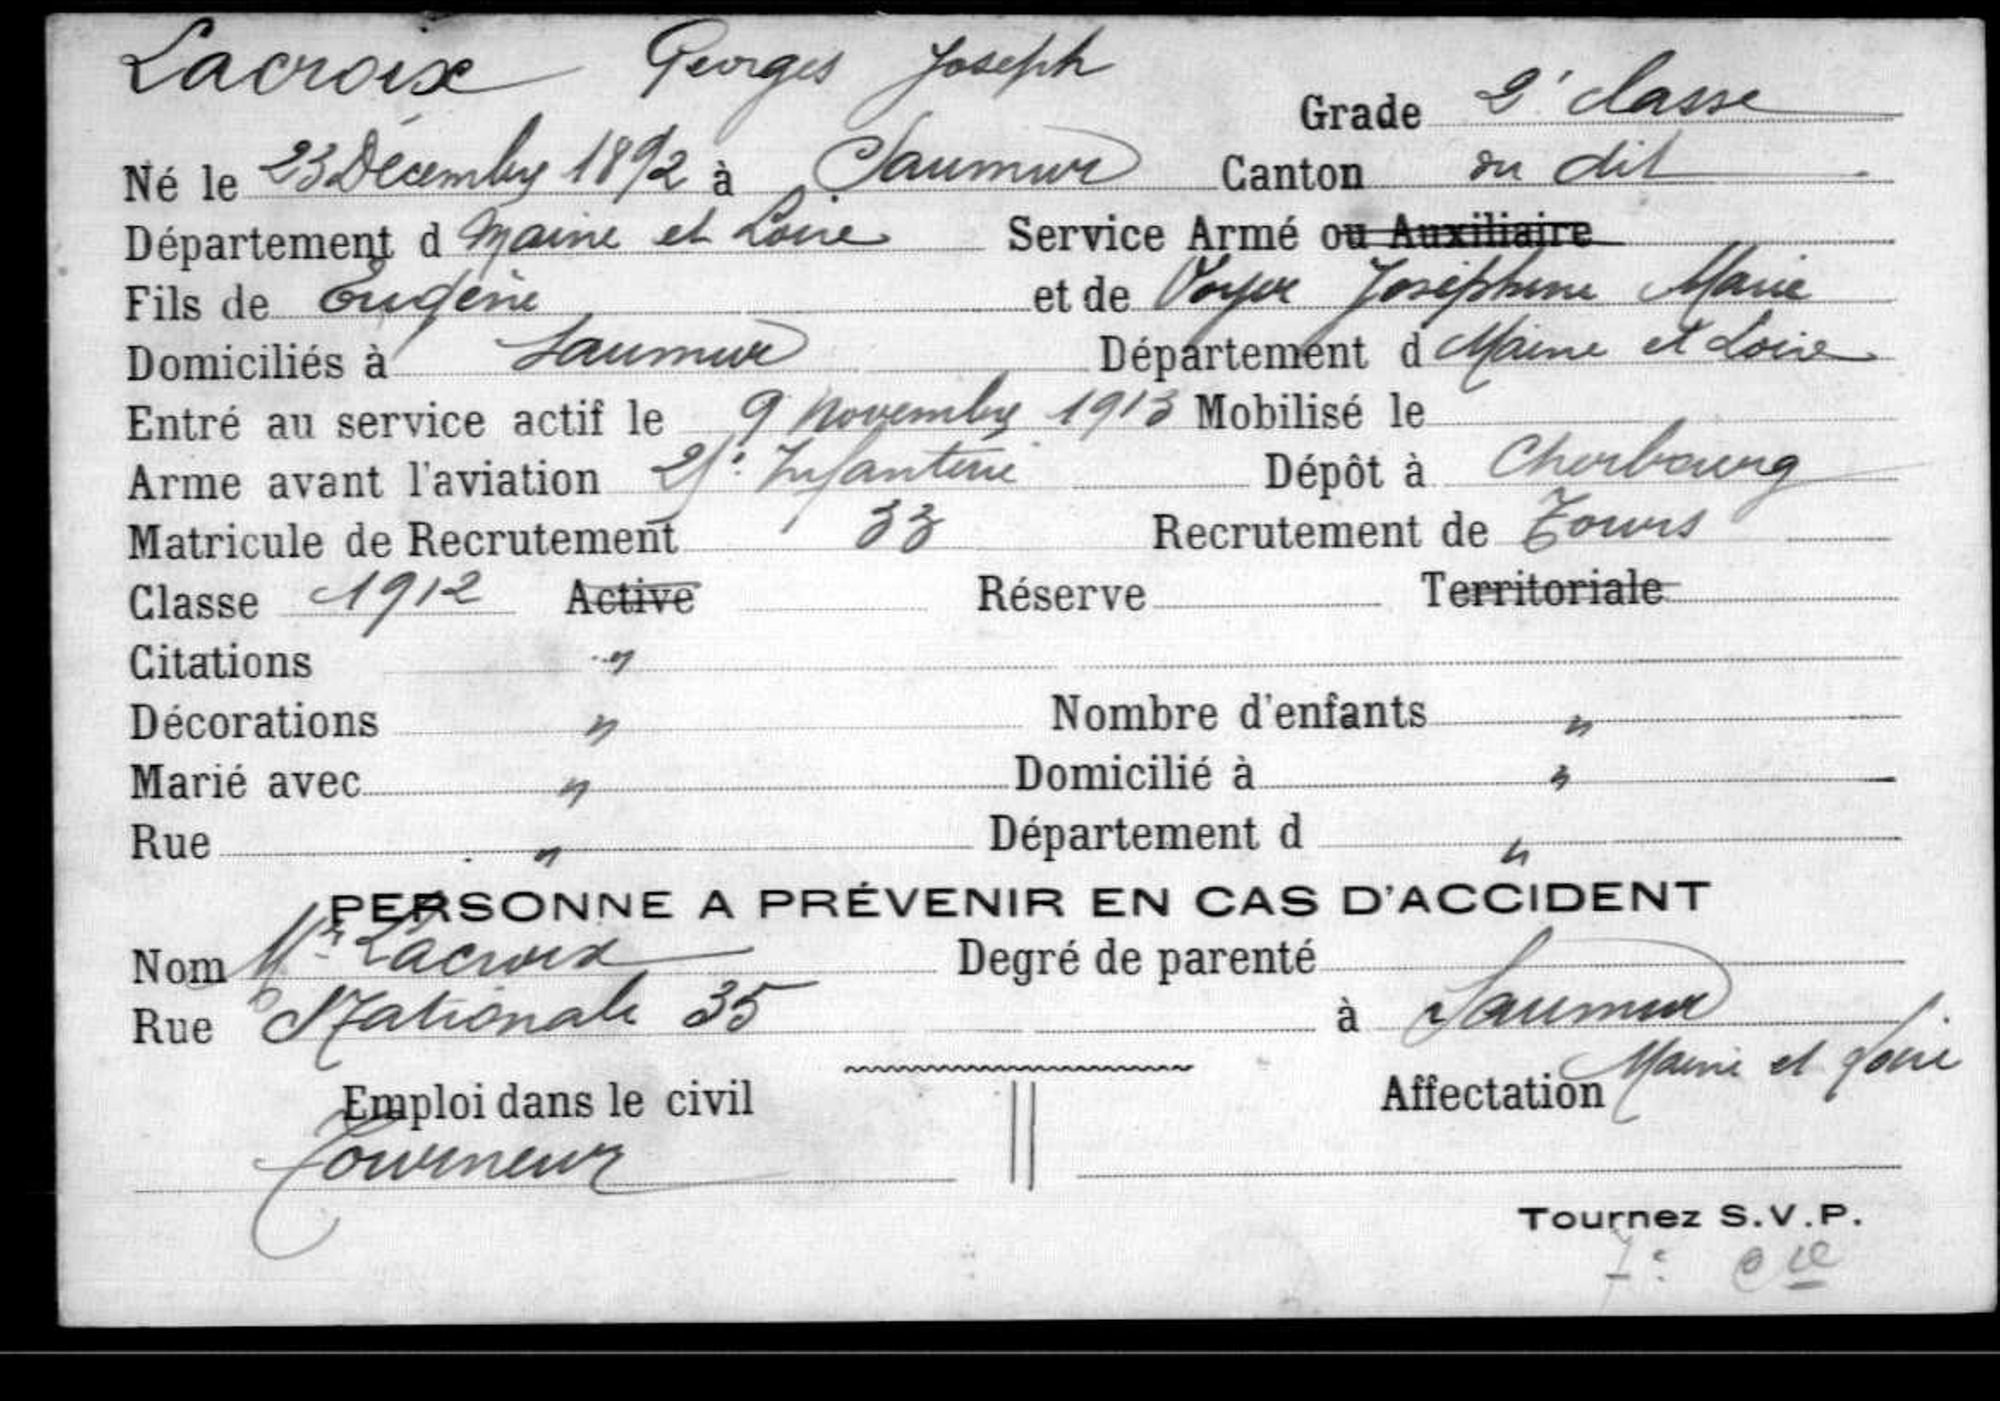 Lacroix Georges Joseph
Grade 2e classe
Né le 23 Décembre 1892 à Saumur Canton du dit
Département d Maine et Loire Service Armé ou Auxiliaire
Fils de Eugène et de Voyer Joséphine Marie
Domiciliés à Saumur Département d Maine et Loire
Entré au service actif le 9 Novembre 1913 Mobilisé le
Arme avant l'aviation 25e Infanterie Dépôt à Cherbourg
Matricule de Recrutement 33 Recrutement de Tours
Classe 1912 Active Réserve Territoriale
Citations "
Décorations " Nombre d'enfants "
Marié avec " Domicilié à "
Rue " Département d "
PERSONNE A PRÉVENIR EN CAS D'ACCIDENT
Nom Mr Lacroix Degré de parenté
Rue Nationale 35 à Saumur
Maine et Loire
Emploi dans le civil Affectation
Tourneur
Tournez S.V.P.
7e Cie